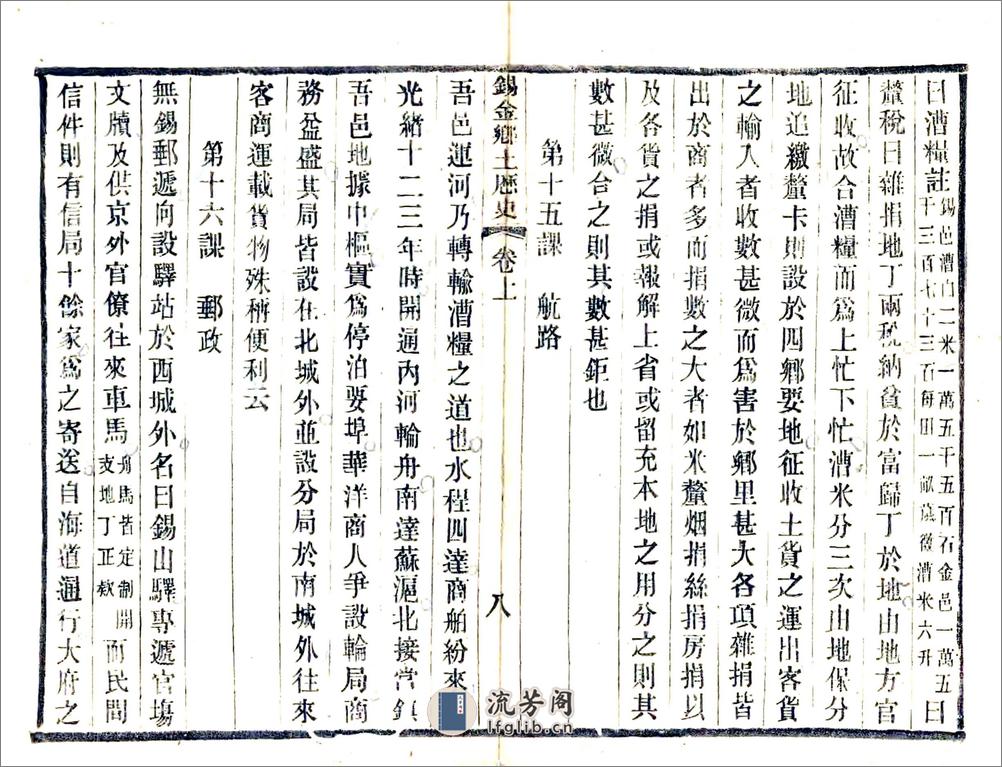 曰漕糧註錫邑漕白二米一萬五千五百石金邑一萬五千三百七十三石每田一畝蔭徵漕米六升曰
釐稅曰雜捐地丁兩稅納貧於富歸丁於地由地方官
征收故合漕糧而爲上忙下忙漕米分三次由地保分
地追繳釐卡則設於四鄉要地征收土貨之運出客貨
之輸入者收數甚微而爲害於鄉里甚大各項雜捐皆
出於商者多而捐數之大者如米釐烟捐絲捐房捐以
及各貨之捐或報解上省或留充本地之用分之則其
數甚微合之則其數甚鉅也
第十五課 航路
錫金鄉土歷史 卷上 八
吾邑運河乃轉輸漕糧之道也水程四達商舶紛來
光緒十二三年時開通內河輪舟南達蘇滬北接常鎮
吾邑地據中樞實爲停泊要埠華洋商人爭設輪局商
務益盛其局皆設在北城外並設分局於南城外往來
客商運載貨物殊稱便利云
第十六課 郵政
無錫郵遞向設驛站於西城外名曰錫山驛專遞官塲
文牘及供京外官僚往來車馬舟馬皆定制開支地丁正欵而民間
信件則有信局十餘家爲之寄送自海道通行大府之
流芳阁
lfglib.cn